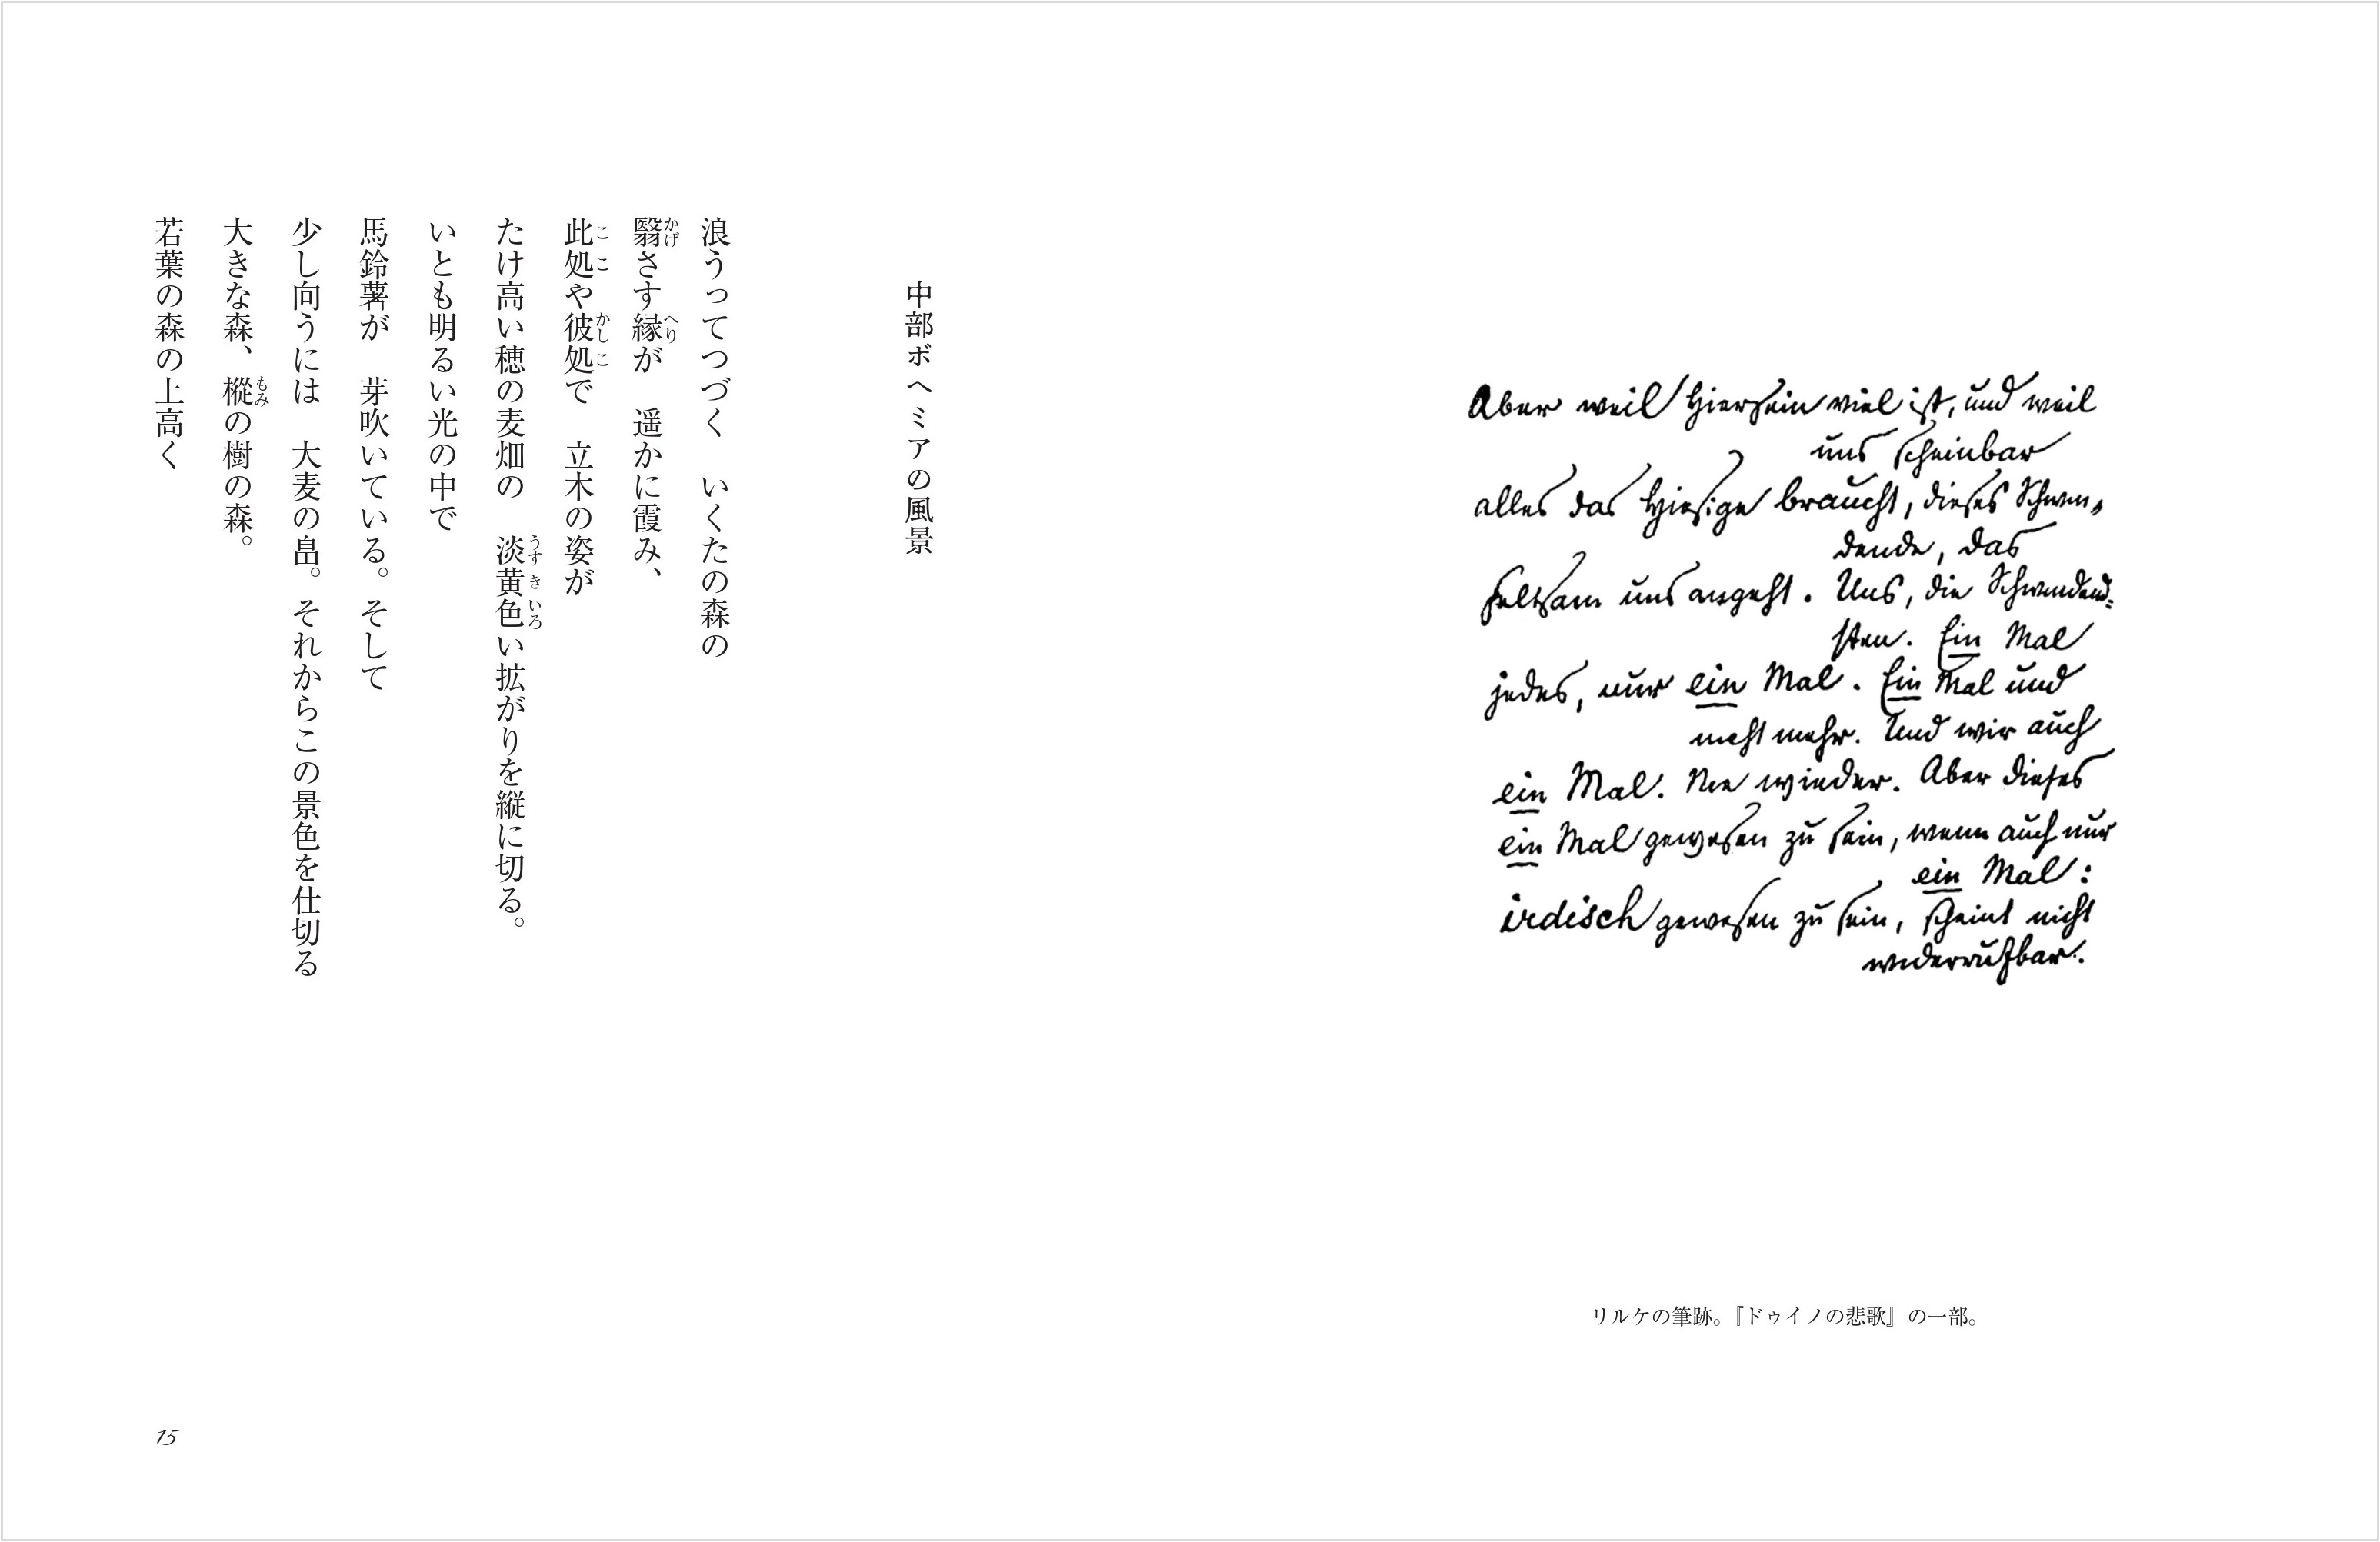 Aber weil Hiersein viel ist, und weil
uns scheinbar
alles das Hiesige braucht, dieses Schwin-
dende, das
seltsam uns angeht. Uns, die Schwindend-
sten. Ein Mal
jedes, nur ein Mal. Ein Mal und
nicht mehr. Und wir auch
ein Mal. Nie wieder. Aber dieses
ein Mal gewesen zu sein, wenn auch nur
ein Mal:
irdisch gewesen zu sein, scheint nicht
widerrufbar.
リルケの筆跡。『ドゥイノの悲歌』の一部。
中部ボヘミアの風景
浪うってつづく　いくたの森の
翳さす縁が　遥かに霞み、
此処や彼処で　立木の姿が
たけ高い穂の麦畑の　淡黄色い拡がりを縦に切る。
いとも明るい光の中で
馬鈴薯が　芽吹いている。そして
少し向うには　大麦の畠。それからこの景色を仕切る
大きな森、樅の樹の森。
若葉の森の上高く
15